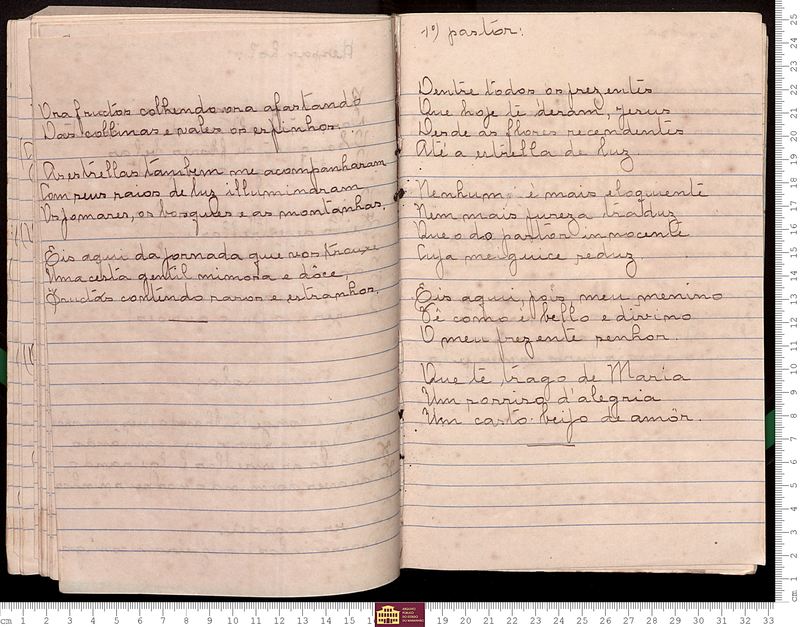 Ora fructos colhendo ora afastando
Das collinas e vales os espinhos.
As estrellas tambem me acompanharam
Com seus raios de luz illuminaram
Os pomares, os bosques e as montanhas.
Eis aqui da jornada que vos trouxe
Uma cesta gentil mimosa e dôce,
Fructos contendo raros e estranhos.
1º) pastor:
Dentre todos os prezentes
Que hoje te deram, Jesus
Desde as flores recendentes
Até a estrella de luz
Nenhum é mais eloquente
Nem mais pureza traduz
Que o do pastor innocente
Cuja meiguice seduz
Eis aqui, pois, meu menino
Vê como é bello e divino
O meu prezente senhor.
Que te trago de Maria
Um sorriso d'alegria
Um casto beijo de amôr.
ARQUIVO
PÚBLICO
DO ESTADO
DO MARANHÃO